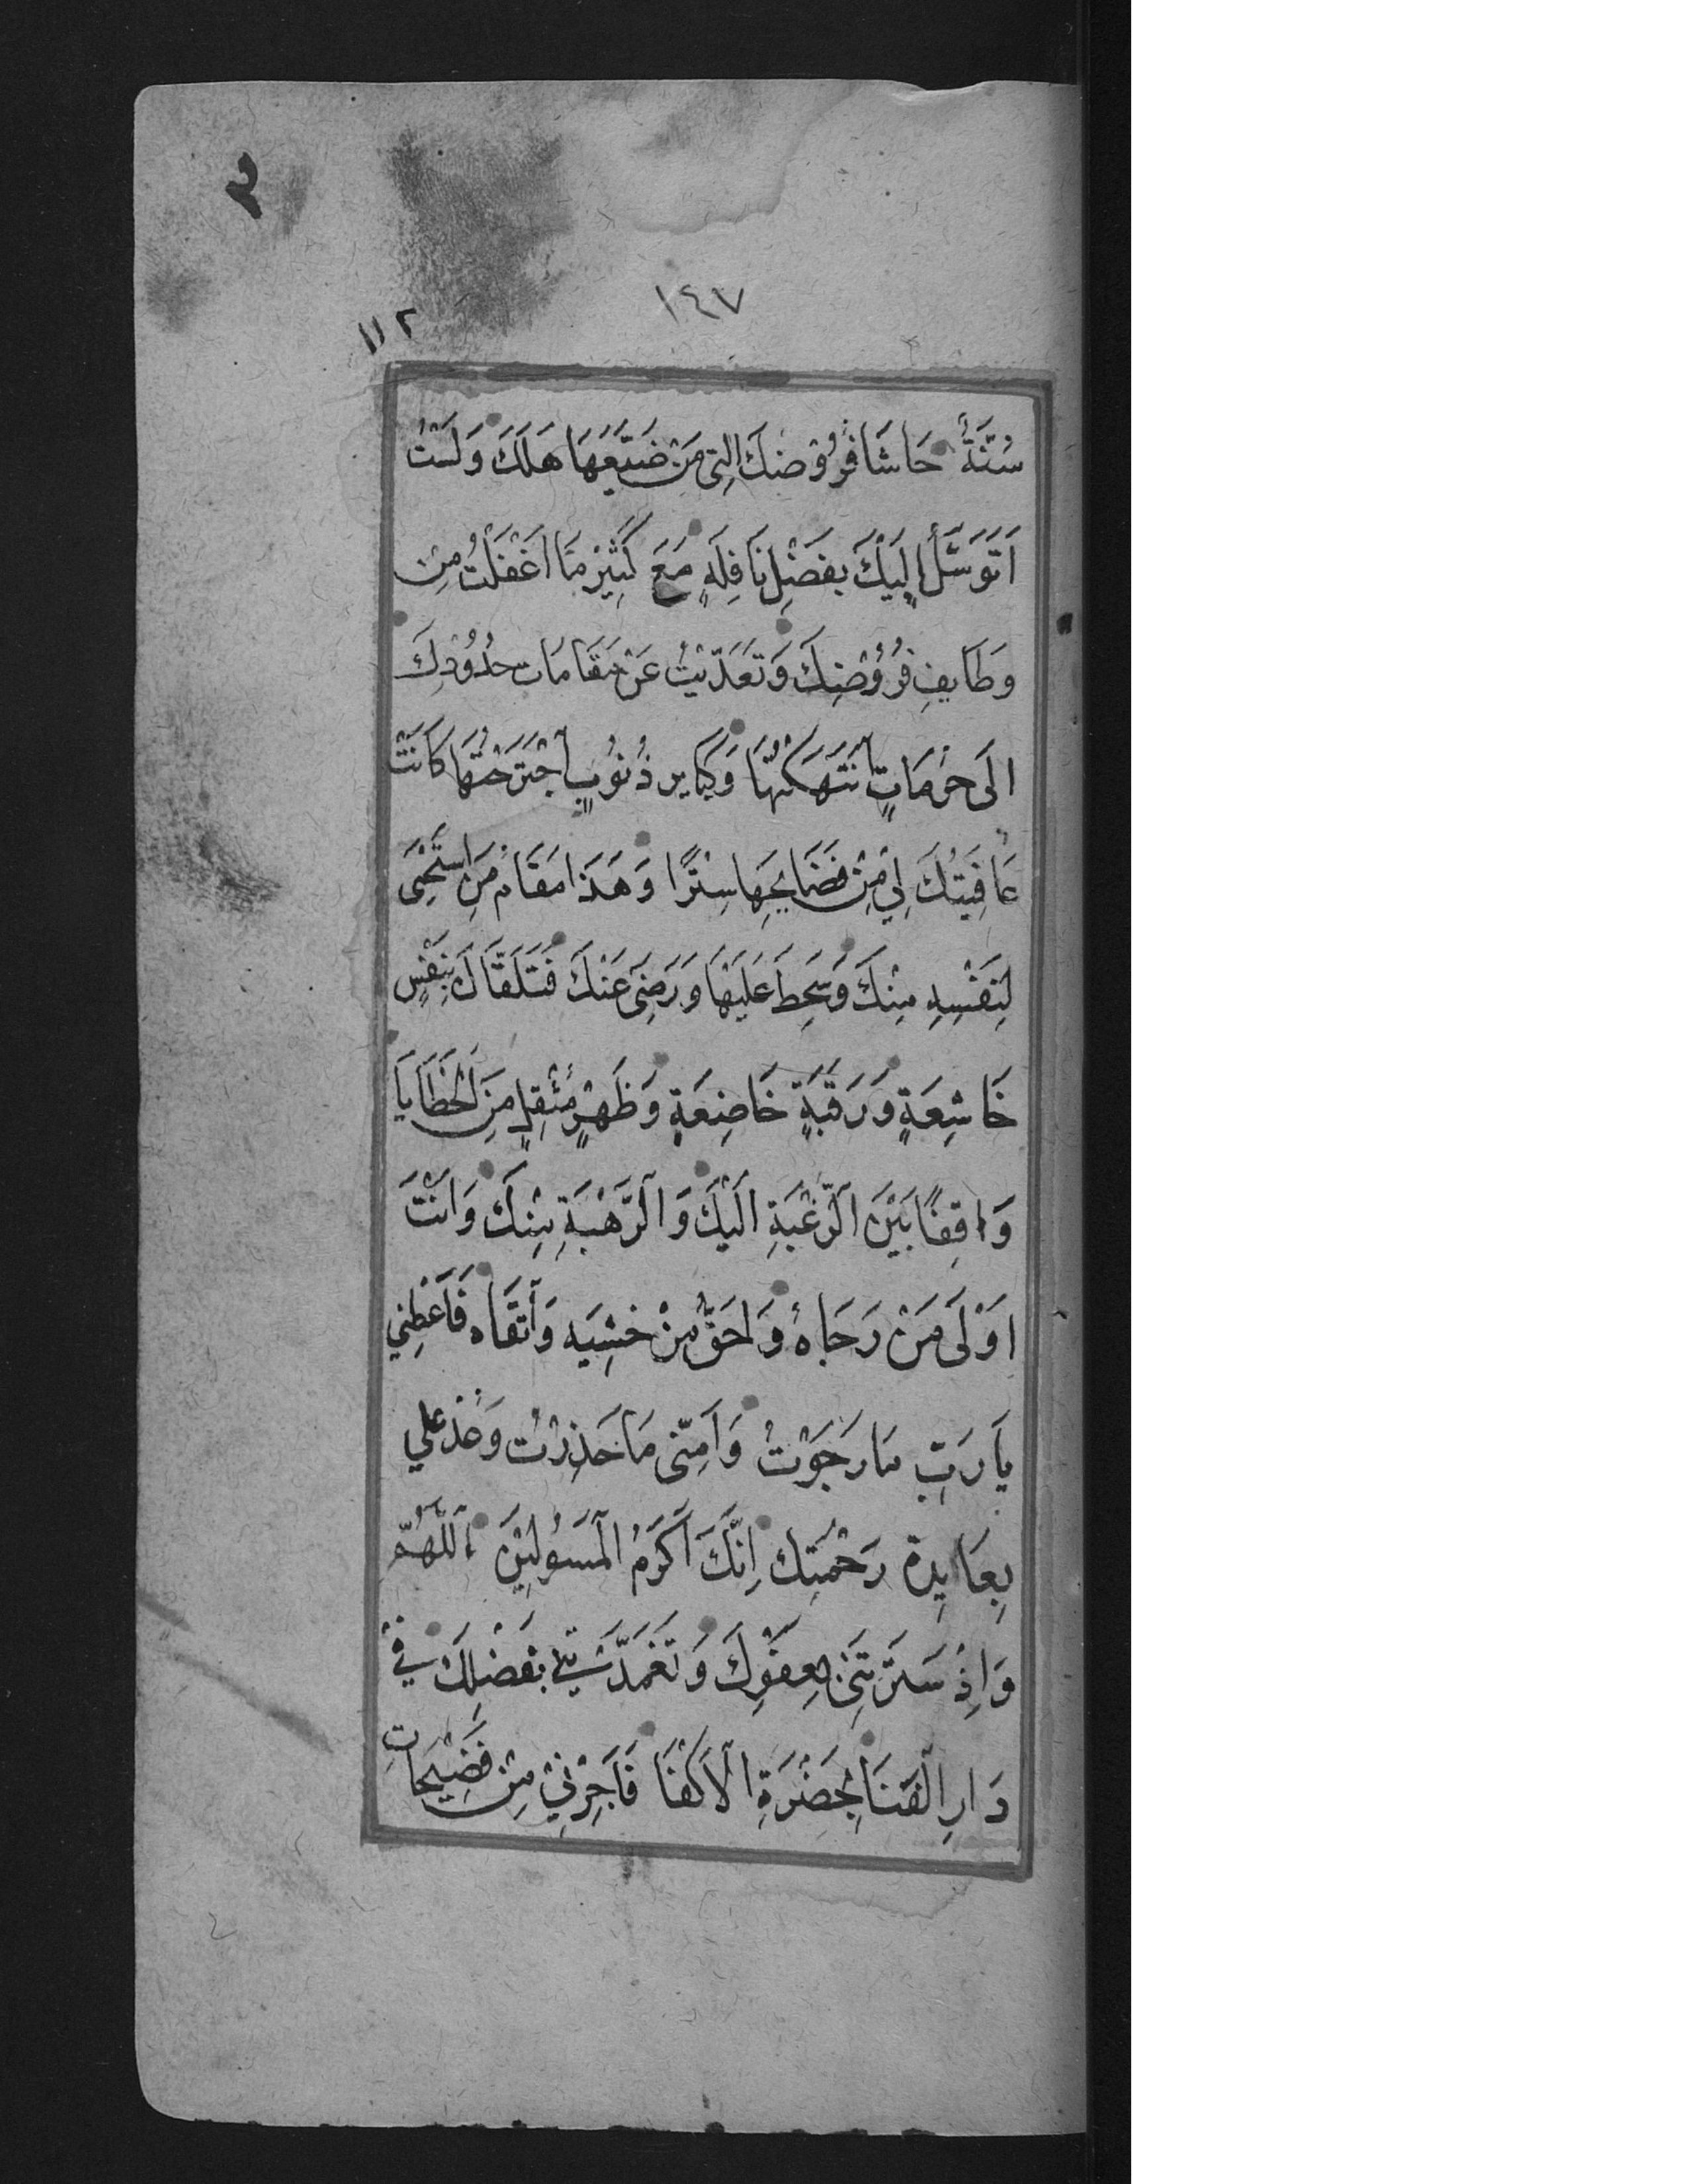 ٣
١٤٧
١١٢
سُنَّةٌ حَاشَا فُرُوْضِكَ الَّتِي مَنْ ضَيَّعَهَا هَلَكَ وَلَسْتُ
اَتَوَسَّلُ اِلَيْكَ بِفَضْلِ نَافِلَةٍ مَعَ كَثِيْرِ مَا اَغْفَلْتُ مِنْ
وَظَايِفِ فُرُوْضِكَ وَتَعَدَّيْتُ عَنْ مَقَامَاتِ حُدُوْدِكَ
اِلَى حُرُمَاتٍ اَنْتَهَكْتُهَا وَكَبَايِرِ ذُنُوْبٍ اَجْتَرَحْتُهَا كَانَتْ
عَافِيَتُكَ لِيْ مِنْ فَضَايِحِهَا سِتْرًا وَهَذَا مَقَامُ مَنِ اسْتَحْيَى
لِنَفْسِهِ مِنْكَ وَسَخِطَ عَلَيْهَا وَرَضِيَ عَنْكَ فَتَلَقَّاكَ بِنَفْسٍ
خَاشِعَةٍ وَرَقَبَةٍ خَاضِعَةٍ وَظَهْرٍ مُثْقَلٍ مِنَ الْخَطَايَا
وَاقِفًا بَيْنَ الرَّغْبَةِ اِلَيْكَ وَالرَّهْبَةِ مِنْكَ وَاَنْتَ
اَوْلَى مَنْ رَجَاهُ وَاَحَقُّ مَنْ خَشِيَه وَاَتَّقَاه فَاَعْطِنِي
يَا رَبِّ مَا رَجَوْتُ وَآمِنِّى مَا حَذِرْتُ وَعُدْ عَلَي
بِعَايِدَةِ رَحْمَتِكَ اِنَّكَ اَكْرَمُ الْمَسْؤُلِيْنَ اَللّٰهُمَّ
وَاِذْ سَتَرْتَنِيْ بِعَفْوِكَ وَتَغَمَّدْتَنِيْ بِفَضْلِكَ فِيْ
دَارِ الْفَنَا بِحَضْرَةِ الْاَكْفَا فَاَجِرْنِيْ مِنْ فَضِيْحَاتِ